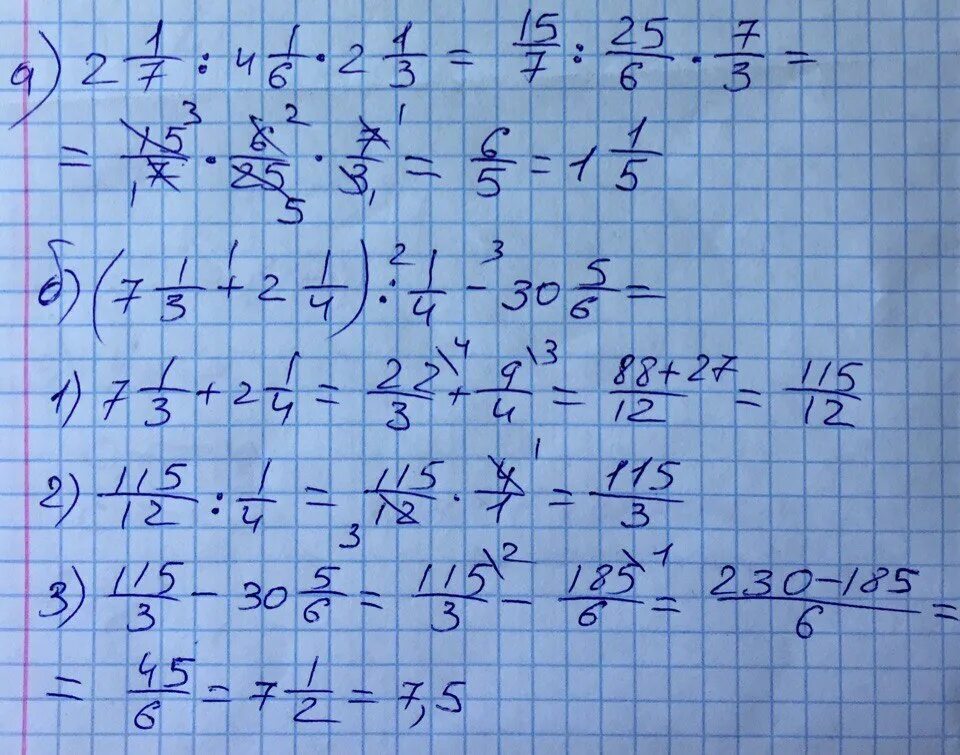 а) 2 1/7 : 4 1/6 · 2 1/3 = 15/7 : 25/6 · 7/3 =
= 15³/₁7 · 6²/25₅ · 7¹/3₁ = 6/5 = 1 1/5
б) (7 1/3 +¹ 2 1/4) :² 1/4 −³ 30 5/6 =
1) 7 1/3 + 2 1/4 = 22\⁴/3 + 9\³/4 = 88+27/12 = 115/12
2) 115/12 : 1/4 = 115/₃12 · 4¹/1 = 115/3
3) 115/3 − 30 5/6 = 115\²/3 − 185\¹/6 = 230−185/6 =
= 45/6 = 7 1/2 = 7,5